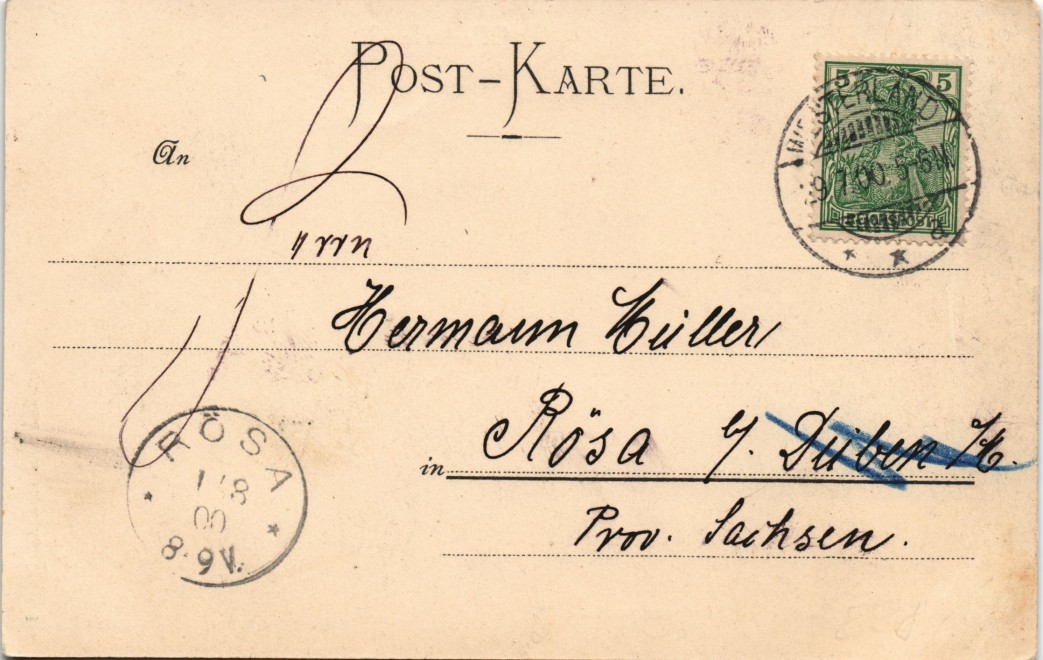 POST-KARTE.
5 5
WESTERLAND
9.7.00. 5-6N.
a
REICHSPOST
An
Herrn
Hermann Müller
Rösa b/ Düben /M.
in
Prov. Sachsen.
RÖSA
1/8
00
8-9V.